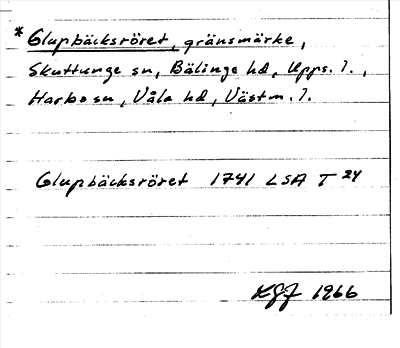 * Glupbäcksröret, gränsmärke,
Skuttunge sn, Bälinge hd, Upps. l.,
Harbo sn, Våla hd, Västm. l.
Glupbäcksröret 1741 LSA T 24
1966